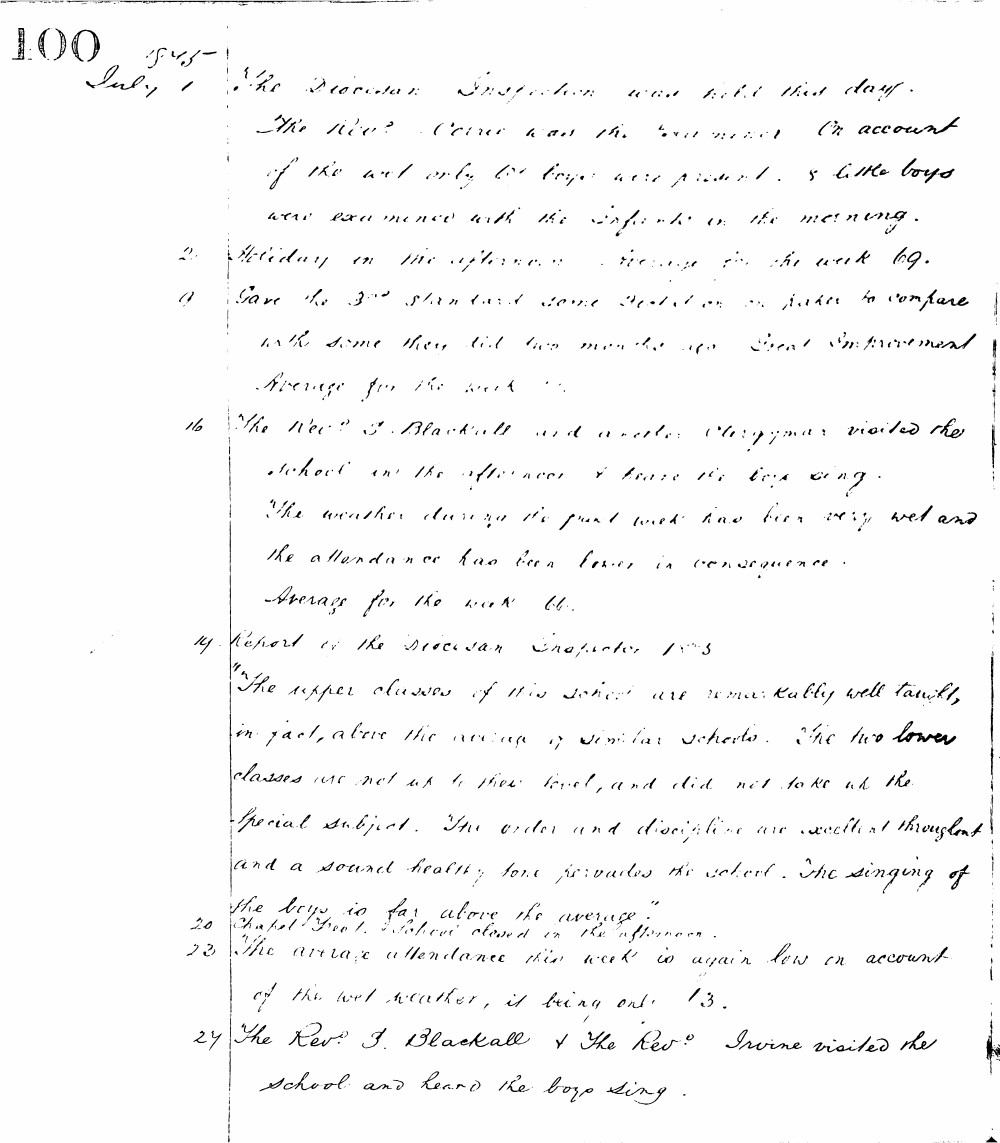 100
July 1 The Diocesan Inspection was held this day.
The Revd. was the Examiner On account
of the wet only boys were present. 8 little boys
were examined with the Infants in the morning.
2. Holiday in the afternoon. Average for the week 69.
9 Gave the 3rd Standard some Dictation on paper to compare
with some they did two months ago Great Improvement
Average for the week
16 The Revd. T. Blackall and another Clergyman visited the
school in the afternoon & heard the boys sing.
The weather during the past week has been very wet and
the attendance has been lower in consequence.
Average for the week 66.
19. Report of the Diocesan Inspector
"The upper classes of this school are remarkably well taught,
in fact, above the average of similar schools. The two lower
classes are not up to their level, and did not take up the
Special subject. The order and discipline are excellent throughout
and a sound healthy tone pervades the school. The singing of
the boys is far above the average."
20 Chapel Treat. School closed in the afternoon.
23 The average attendance this week is again low on account
of the wet weather, it being only
27 The Revd. T. Blackall & The Revd. Irvine visited the
school and heard the boys sing.